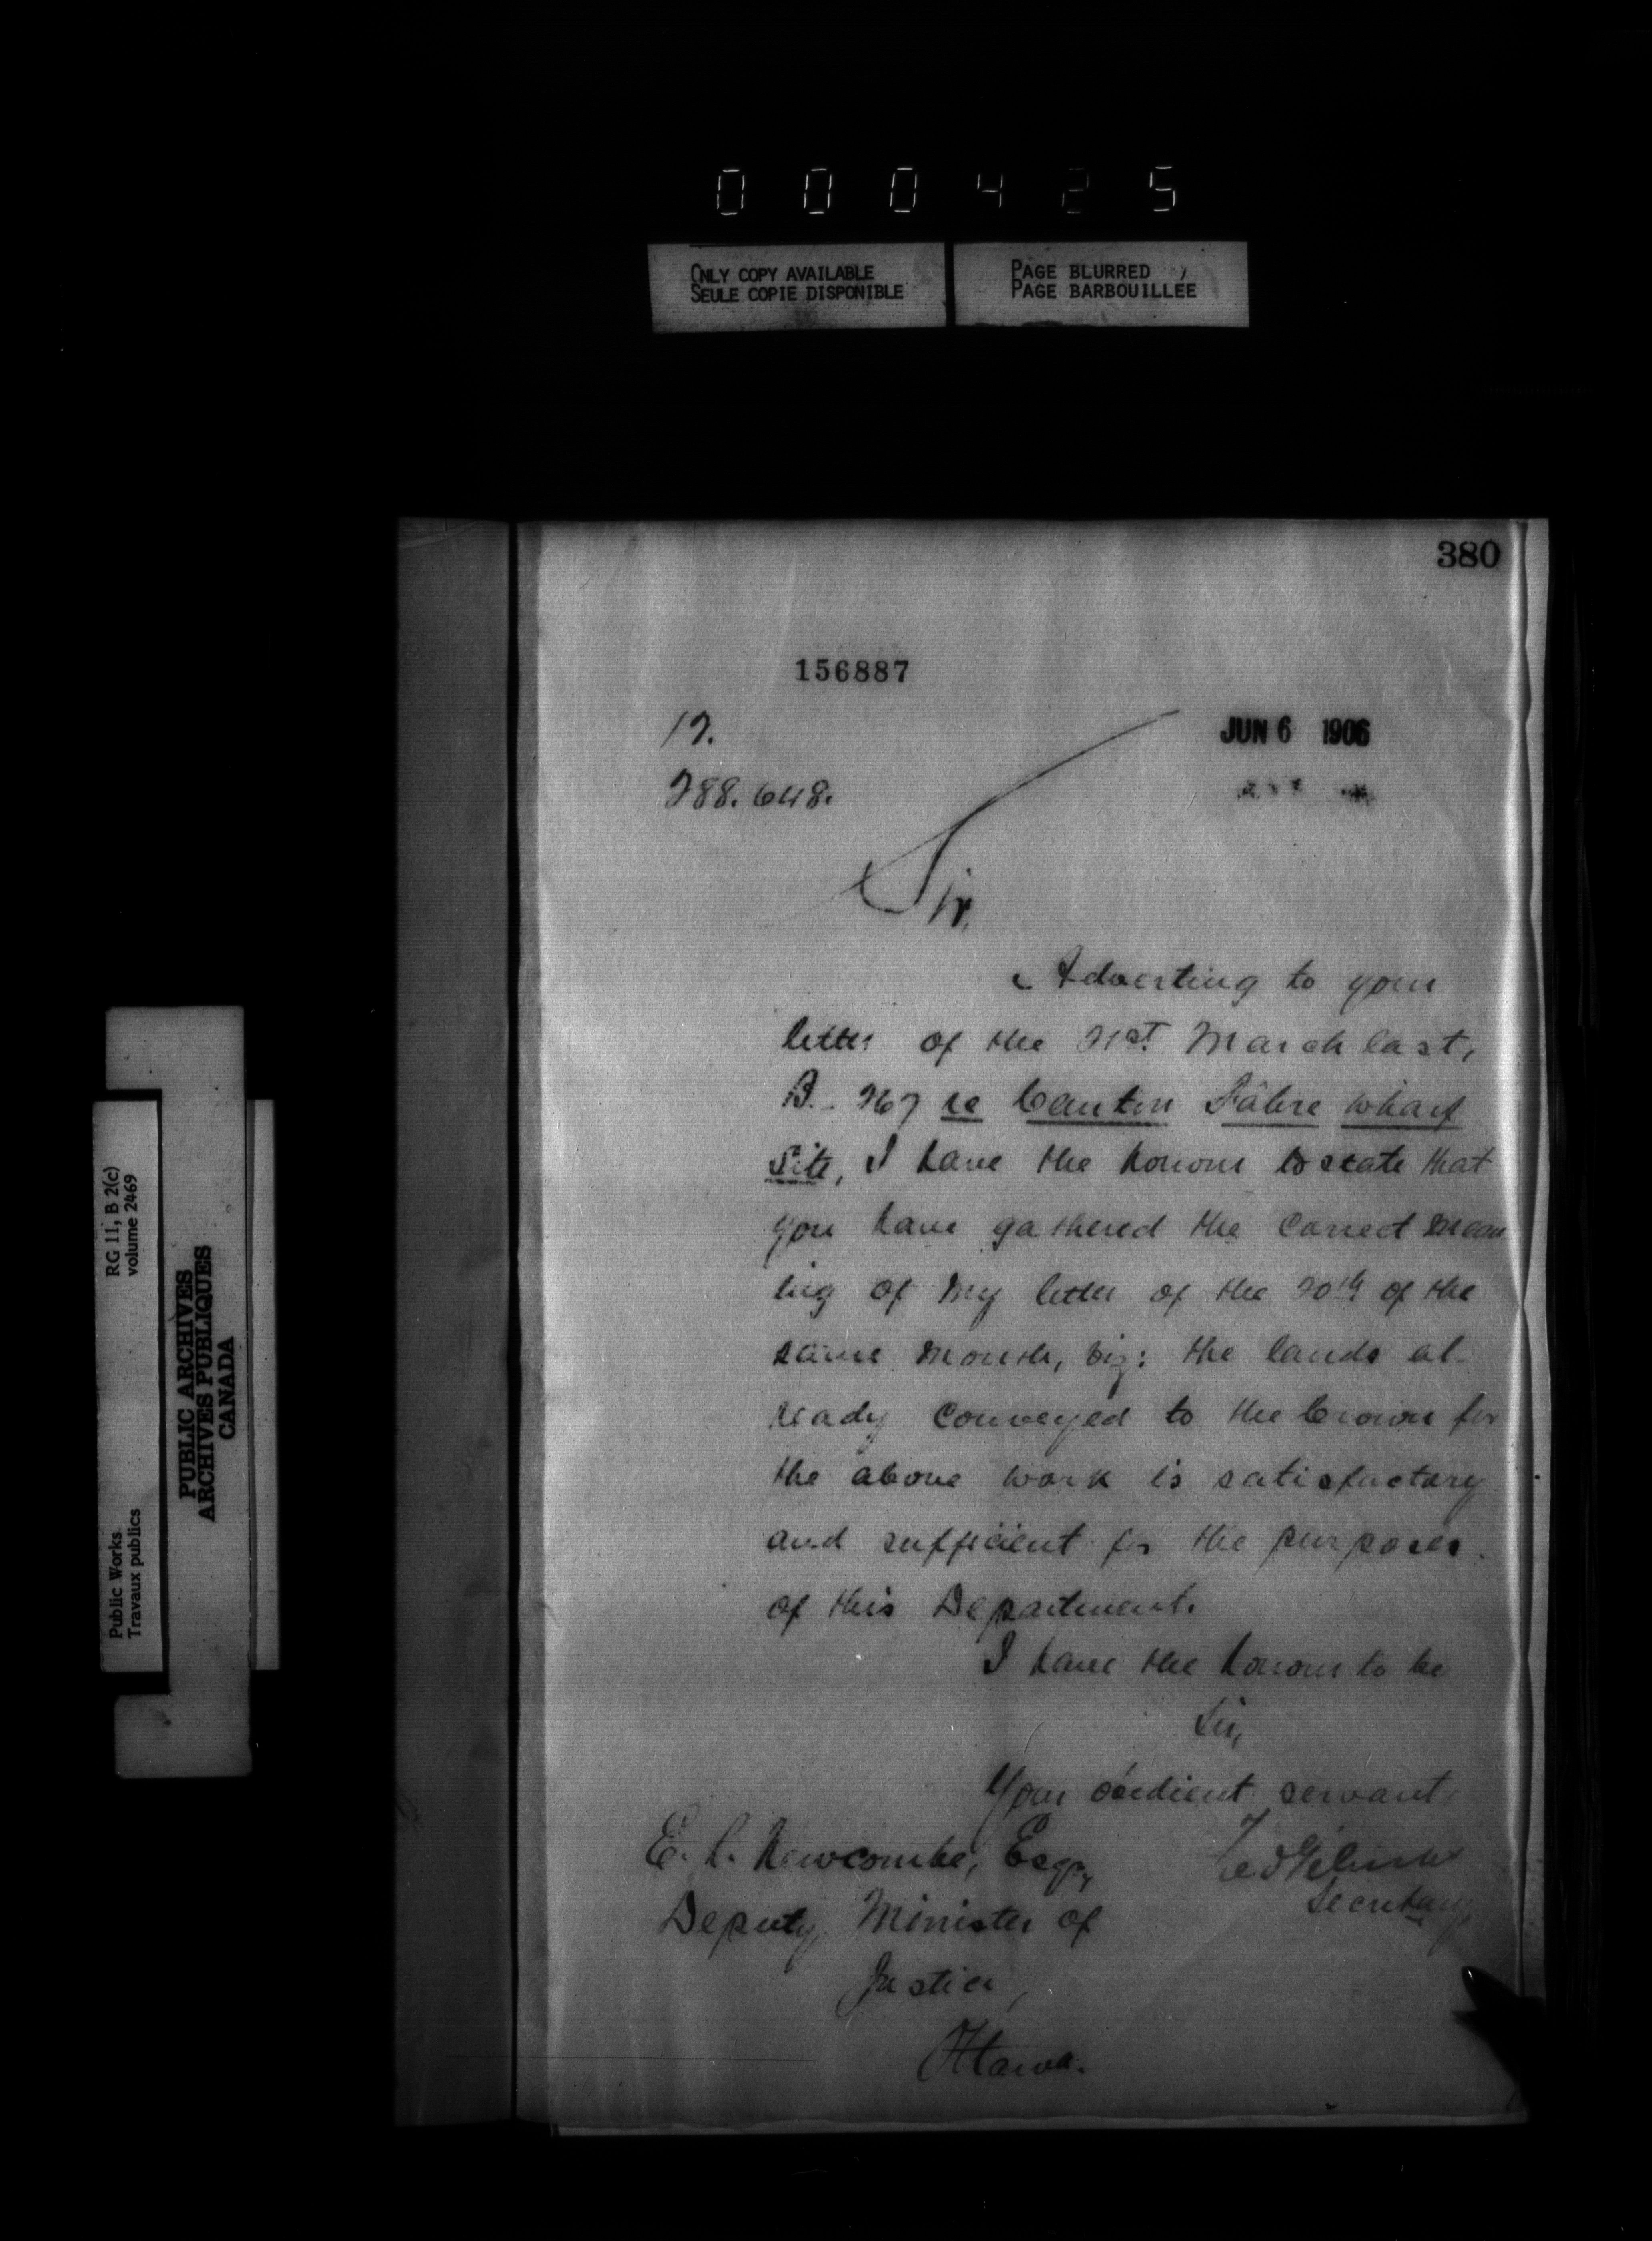 000425
ONLY COPY AVAILABLE
SEULE COPIE DISPONIBLE
PAGE BLURRED
PAGE BARBOUILLÉE
380
156887
17.
288.648.
JUN 6 1906
Sir,
Adverting to your
letter of the 21st March last,
B. 267 re Canton Fabre wharf
Site, I have the honour to state that
you have gathered the correct mean
ing of my letter of the 20th of the
same month, viz: the lands al-
ready conveyed to the Crown for
the above work is satisfactory
and sufficient for the purposes
of this Department.
I have the honour to be
Sir,
Your obedient servant,
Fred Gélinas
Secretary
E. L. Newcombe, Esq.,
Deputy Minister of
Justice,
Ottawa.
RG 11, B 2(c)
volume 2469
Public Works
Travaux publics
PUBLIC ARCHIVES
ARCHIVES PUBLIQUES
CANADA